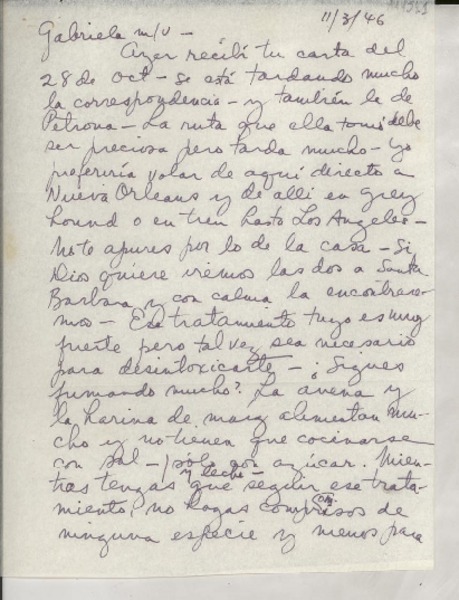 11/3/46
Gabriela m/v -
Ayer recibí tu carta del
28 de Oct - Se está tardando mucho
la correspondencia - y también la de
Petrona - La ruta que ella tomó debe
ser preciosa pero tarda mucho - yo
preferiría volar de aquí directo a
Nueva Orleans y de allí en grey
hound o en tren hasta Los Angeles -
No te apures por lo de la casa - Si
Dios quiere iremos las dos a Santa
Barbara y con calma la encontrare-
mos - Ese tratamiento tuyo es muy
fuerte pero tal vez sea necesario
para desintoxicarte - ¿Sigues
fumando mucho? La avena y
la harina de maiz alimentan mu-
cho y no tienen que cocinarse
con sal - sólo con azúcar. Mien-
y leche -
tras tengas que seguir ese trata-
miento, no hagas compromisos de
ninguna especie y menos para